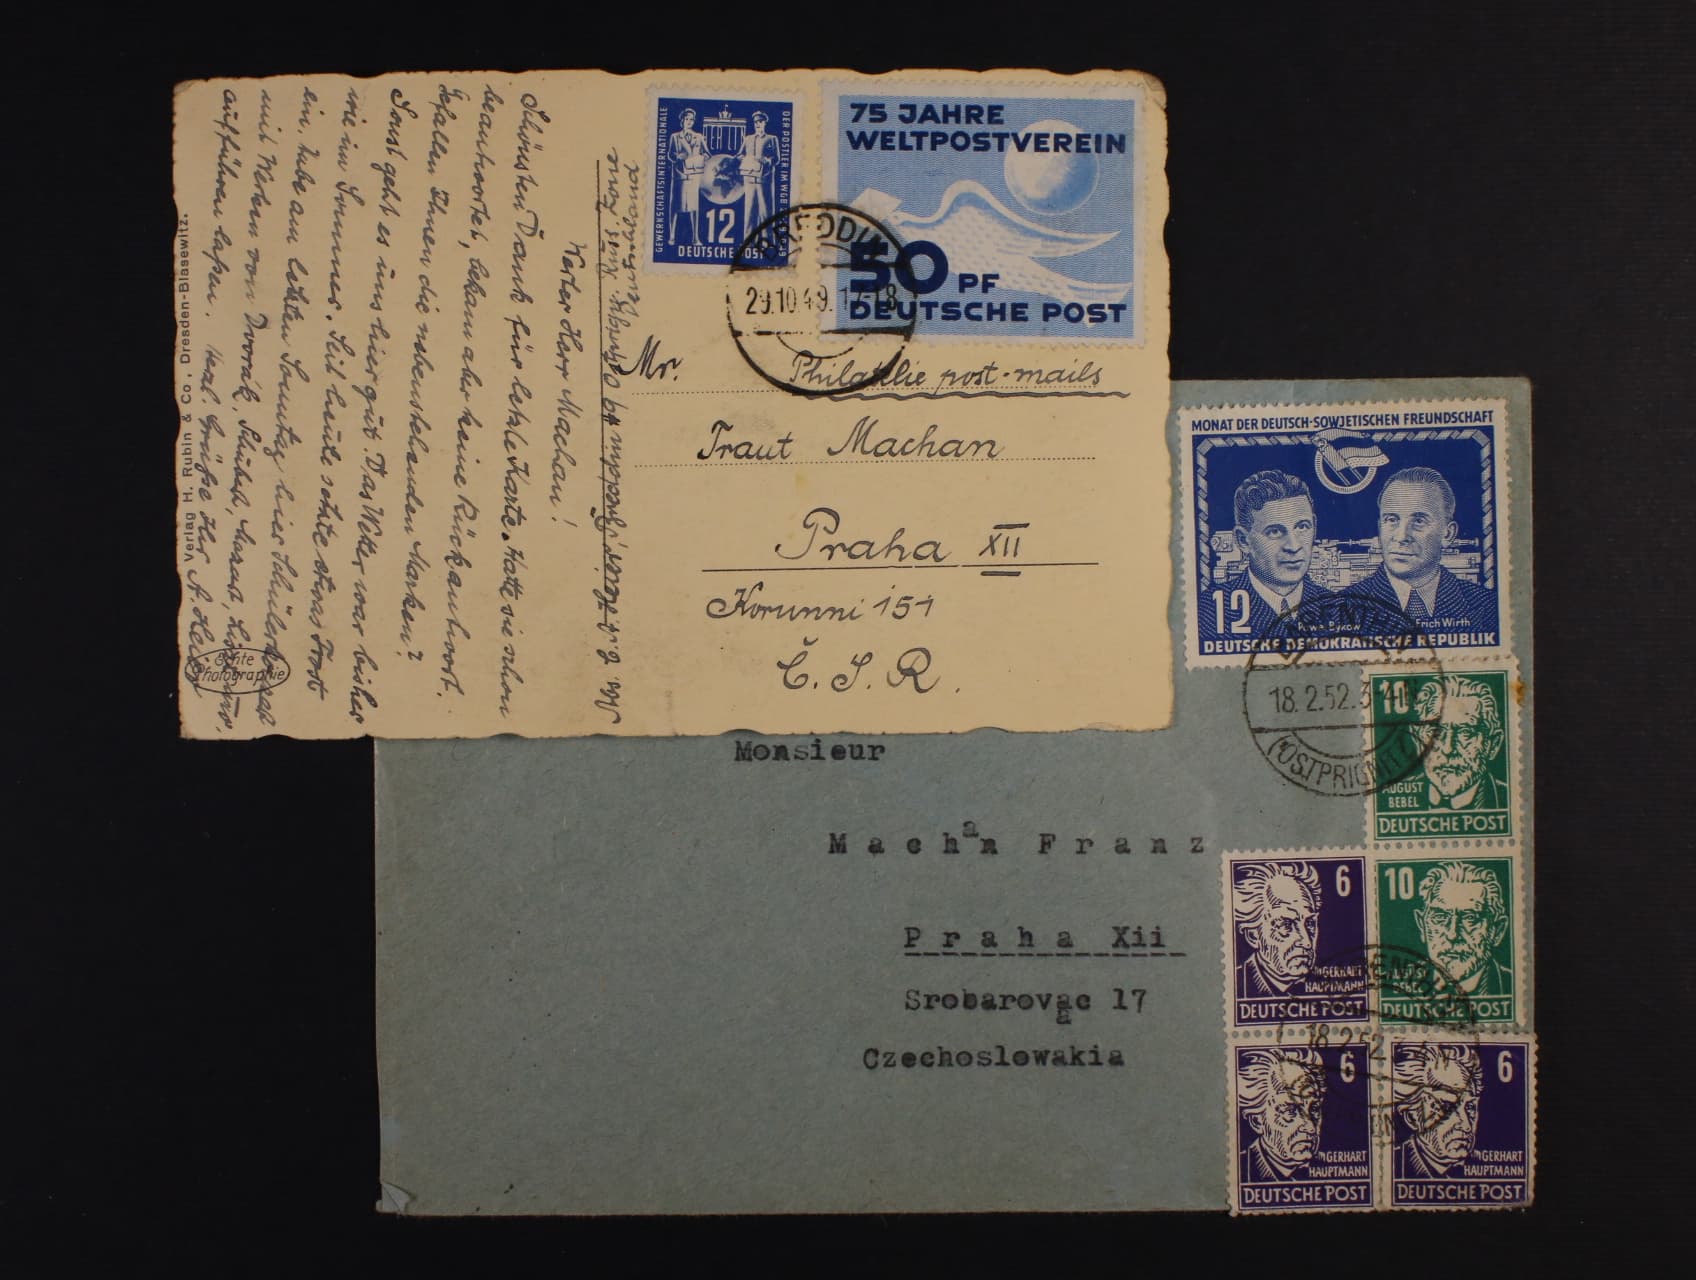 75 JAHRE
WELTPOSTVEREIN
50 PF
DEUTSCHE POST
GEWERKSCHAFTSINTERNATIONALE
DER POSTLER IM WGB
12
DEUTSCHE POST
BREDDIN
29.10.49.17-18
Mr. Philatelie post-mails
Traut Machan
Praha XII
Korunni 151
Č. S. R.
Werter Herr Machan!
Schönsten Dank für letzte Karte. Hatte sie schon
beantwortet, bekam aber keine Rückantwort.
Gefallen Ihnen die nebenstehenden Marken?
Sonst geht es uns hier gut. Das Wetter war bisher
wie im Sommer. Seit heute setzte etwas Frost
ein. Habe am letzten Sonntag hier
mit Werken von Dvorák, Schubert, Mozart,
aufführen laßen. Grüße Ihr A. 
Verlag H. Rubin & Co., Dresden-Blasewitz.
Echte
Photographie
MONAT DER DEUTSCH-SOWJETISCHEN FREUNDSCHAFT
12
Pawel Bykow
Erich Wirth
DEUTSCHE DEMOKRATISCHE REPUBLIK
18.2.52.3-4
(OSTPRIGNITZ)
10
AUGUST
BEBEL
DEUTSCHE POST
Monsieur
Machan Franz
Praha Xii
Srobarovac 17
Czechoslowakia
6
GERHART
HAUPTMANN
DEUTSCHE POST
10
AUGUST
BEBEL
DEUTSCHE POST
18.2.52
6
GERHART
HAUPTMANN
DEUTSCHE POST
6
GERHART
HAUPTMANN
DEUTSCHE POST